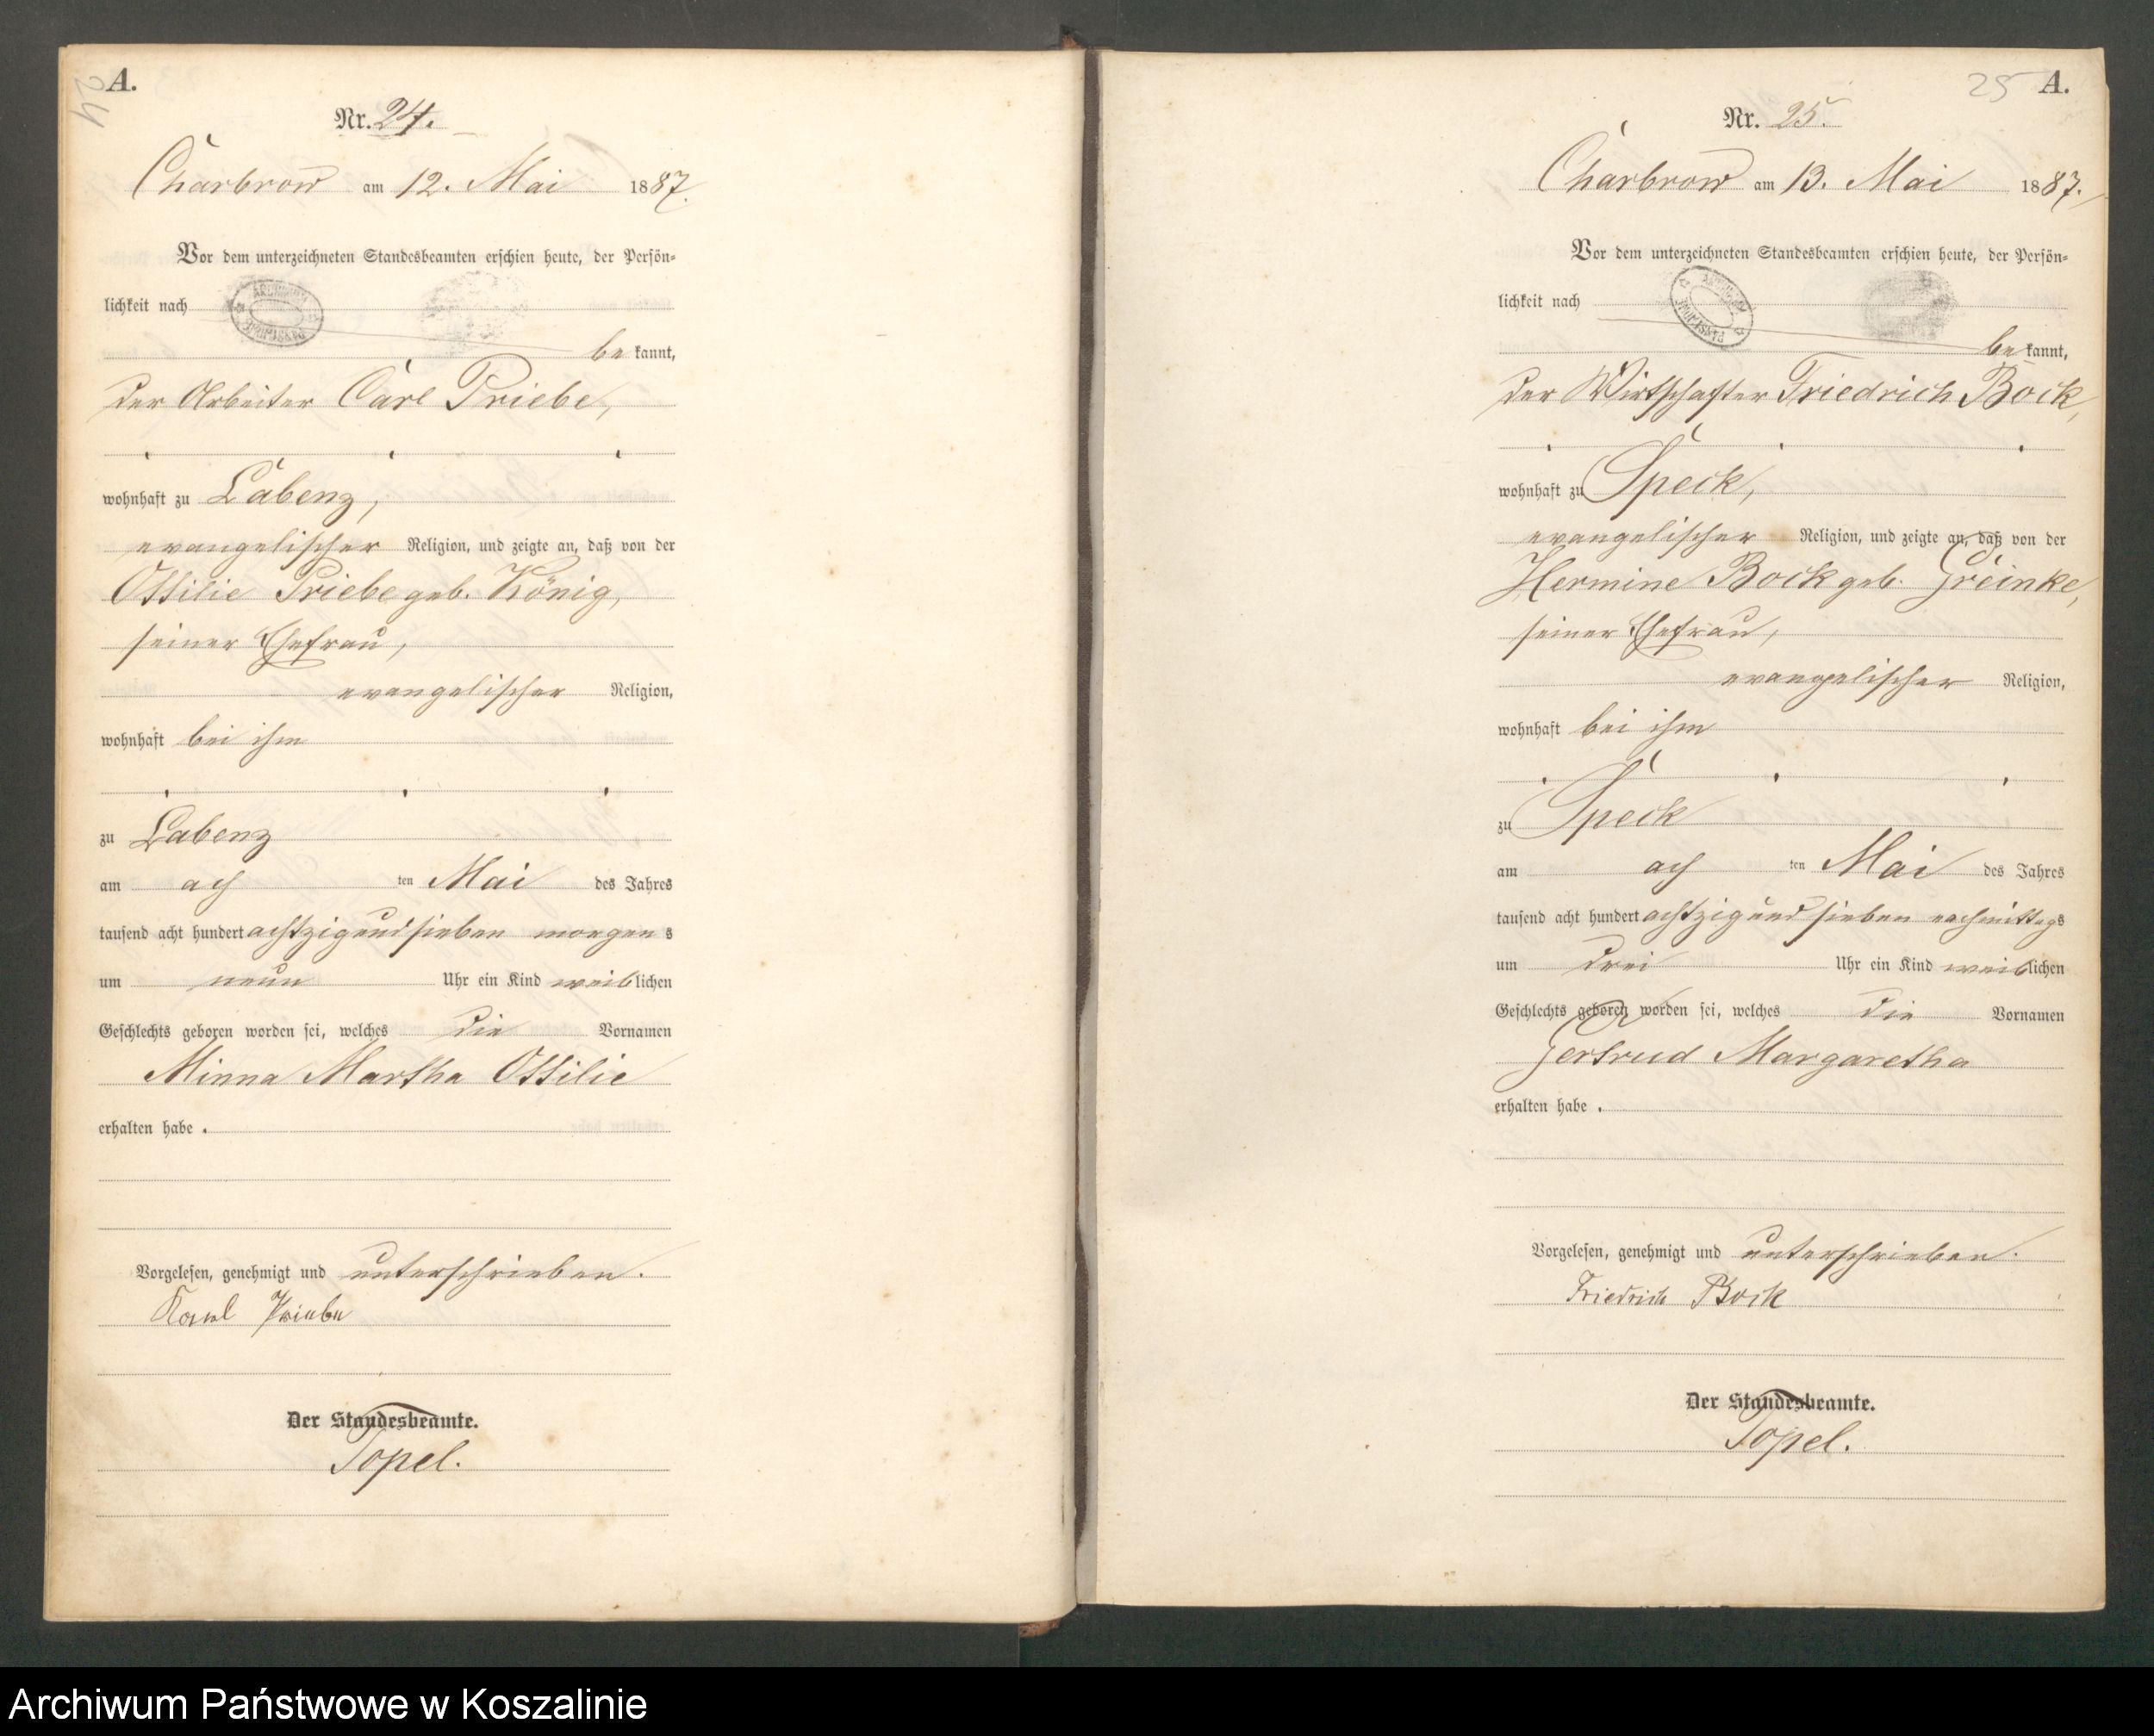 24
A.
Nr. 24.
Charbrow am 12. Mai 1887.
Vor dem unterzeichneten Standesbeamten erschien heute, der Persön-
lichkeit nach
be kannt,
der Arbeiter Carl Priebe,
wohnhaft zu Labenz,
evangelischer Religion, und zeigte an, daß von der
Ottilie Priebe geb. König,
seiner Ehefrau,
evangelischer Religion,
wohnhaft bei ihm
zu Labenz
am ach ten Mai des Jahres
tausend acht hundert achtzig und sieben morgen s
um neun Uhr ein Kind weiblichen
Geschlechts geboren worden sei, welches die Vornamen
Minna Martha Ottilie
erhalten habe .
Vorgelesen, genehmigt und unterschrieben.
Karl Priebe
Der Standesbeamte.
Topel.
25 A.
Nr. 25.
Charbrow am 13. Mai 1887.
Vor dem unterzeichneten Standesbeamten erschien heute, der Persön-
lichkeit nach
be kannt,
der Wirthschafter Friedrich Bock,
wohnhaft zu Speck,
evangelischer Religion, und zeigte an, daß von der
Hermine Bock geb. Greinke,
seiner Ehefrau,
evangelischer Religion,
wohnhaft bei ihm
zu Speck
am ach ten Mai des Jahres
tausend acht hundert achtzig und sieben nachmittags
um drei Uhr ein Kind weiblichen
Geschlechts geboren worden sei, welches die Vornamen
Gertrud Margaretha
erhalten habe .
Vorgelesen, genehmigt und unterschrieben.
Friedrich Bock
Der Standesbeamte.
Topel.
Archiwum Państwowe w Koszalinie